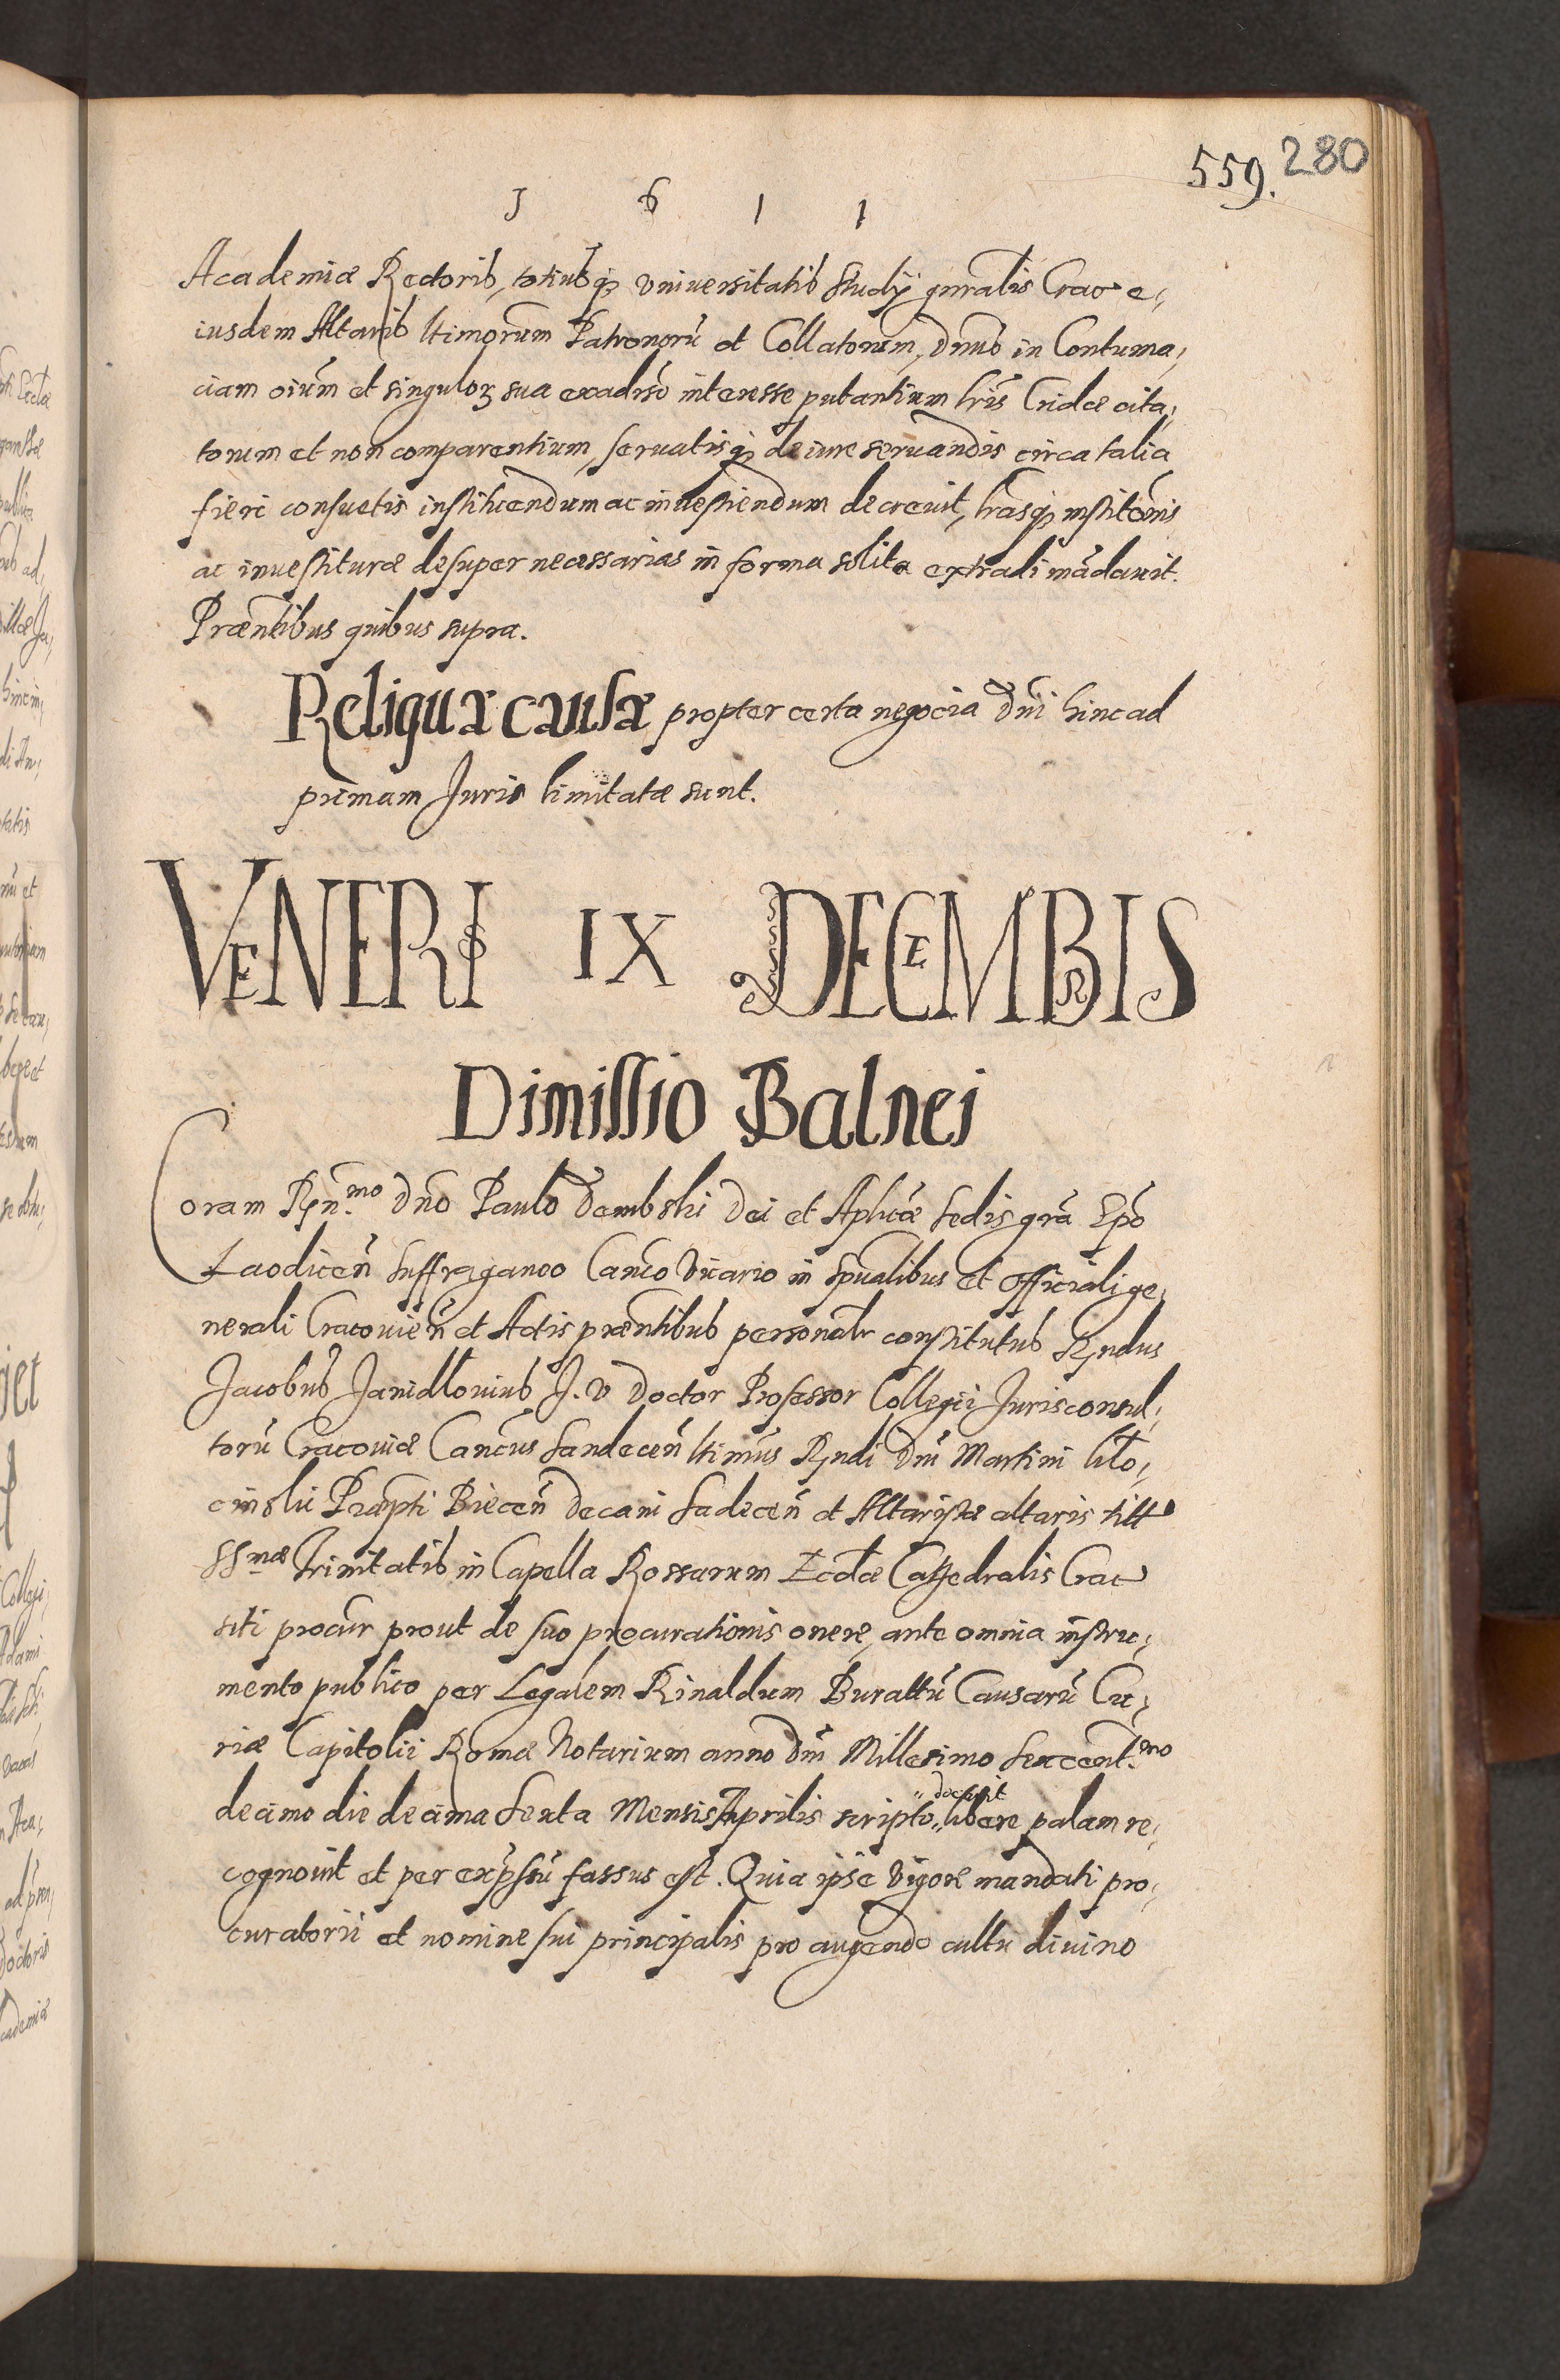 559. 280
1 6 1 1
Academiæ Rectoris, totiusq₃ Vniuersitatis Studij gnralis Crac e,
iusdem Altaris ltimorum Patronorũ et Collatorum, dnus in Contuma,
ciam oium et singuloꝝ sua exaduso interesse putantium lris Cridæ cita,
torum et non comparentium, seruatisq₃ de iure seruandis circa talia
fieri consuetis instituendum ac inuestiendum decreuit, lrasq₃ institonis
ac inuestituræ desuper necessarias in forma solita extradi mãdauit.
Præntibus quibus supra.
Reliquæ causæ propter certa negocia dni hinc ad
primam Juris limitatæ sunt.
VENERIS IX DECEMBRIS
Dimissio Balnei
Coram Rñ.mo dno Paulo Dembski Dei et Aplicæ Sedis gra Epo
Laodiceñ Suffraganeo Canco Vicario in Spualibus et Officiali ge,
nerali Cracouieñ et Actis præntibus personalr constitutus Rndus
Jacobus Janidlouius J. V Doctor Professor Collegii Jurisconsul,
torũ Cracouiæ Cancus Sandeceñ ltimus Rndi dni Martini Klo,
cinski Præpti Bieceñ Decani Sadeceñ et Altaristæ altaris titt
SSmæ Trinitatis in Capella Rossarum Ecclæ Cathedralis Crac
siti procur prout de suo procurationis onere, ante omnia instru,
mento publico per Legalem Rinaldum Burattũ Causarũ Cu,
riæ Capitolii Romæ Notarium anno dni Millesimo Sexcent.mo
decimo die decima Sexta Mensis Aprilis scripto „docuit„ libere palam re,
cognouit et per exp̃ssũ fassus est. Quia ipse vigore mandati pro,
curatorii et nomine sui principalis pro augendo cultu diuino